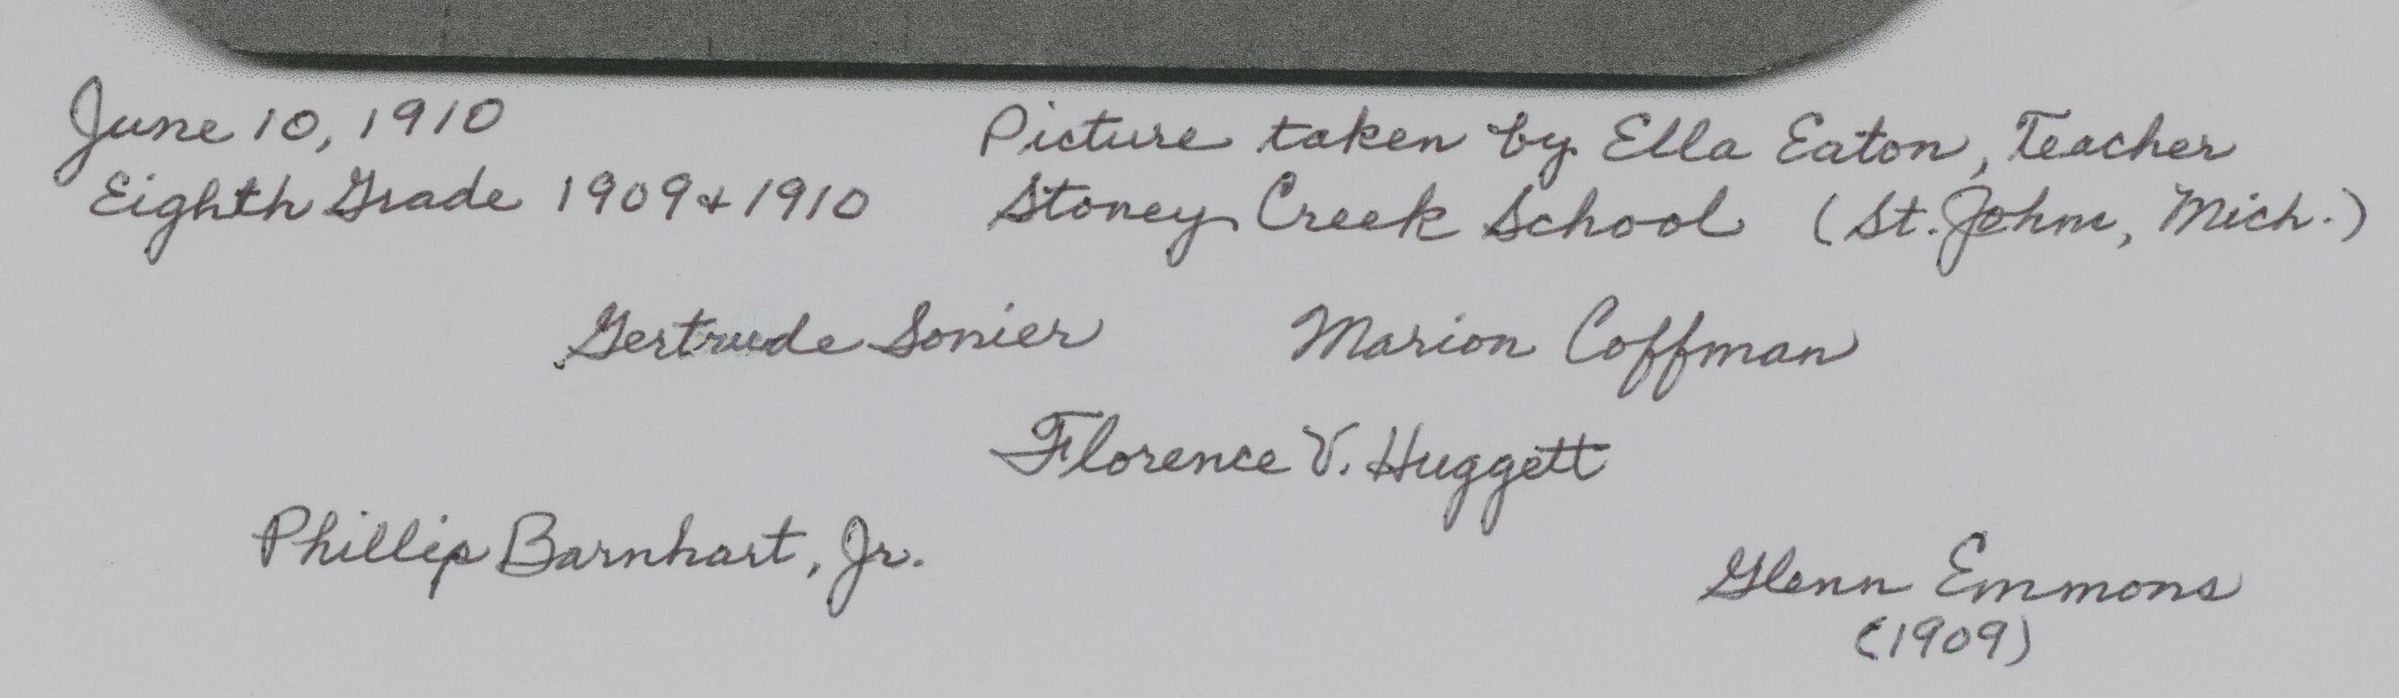 June 10, 1910
Eighth Grade 1909 & 1910
Picture taken by Ella Eaton, Teacher
Stoney Creek School (St. Johns, Mich.)
Gertrude Sonier
Marion Coffman
Florence V. Huggett
Phillip Barnhart, Jr.
Glenn Emmons
(1909)